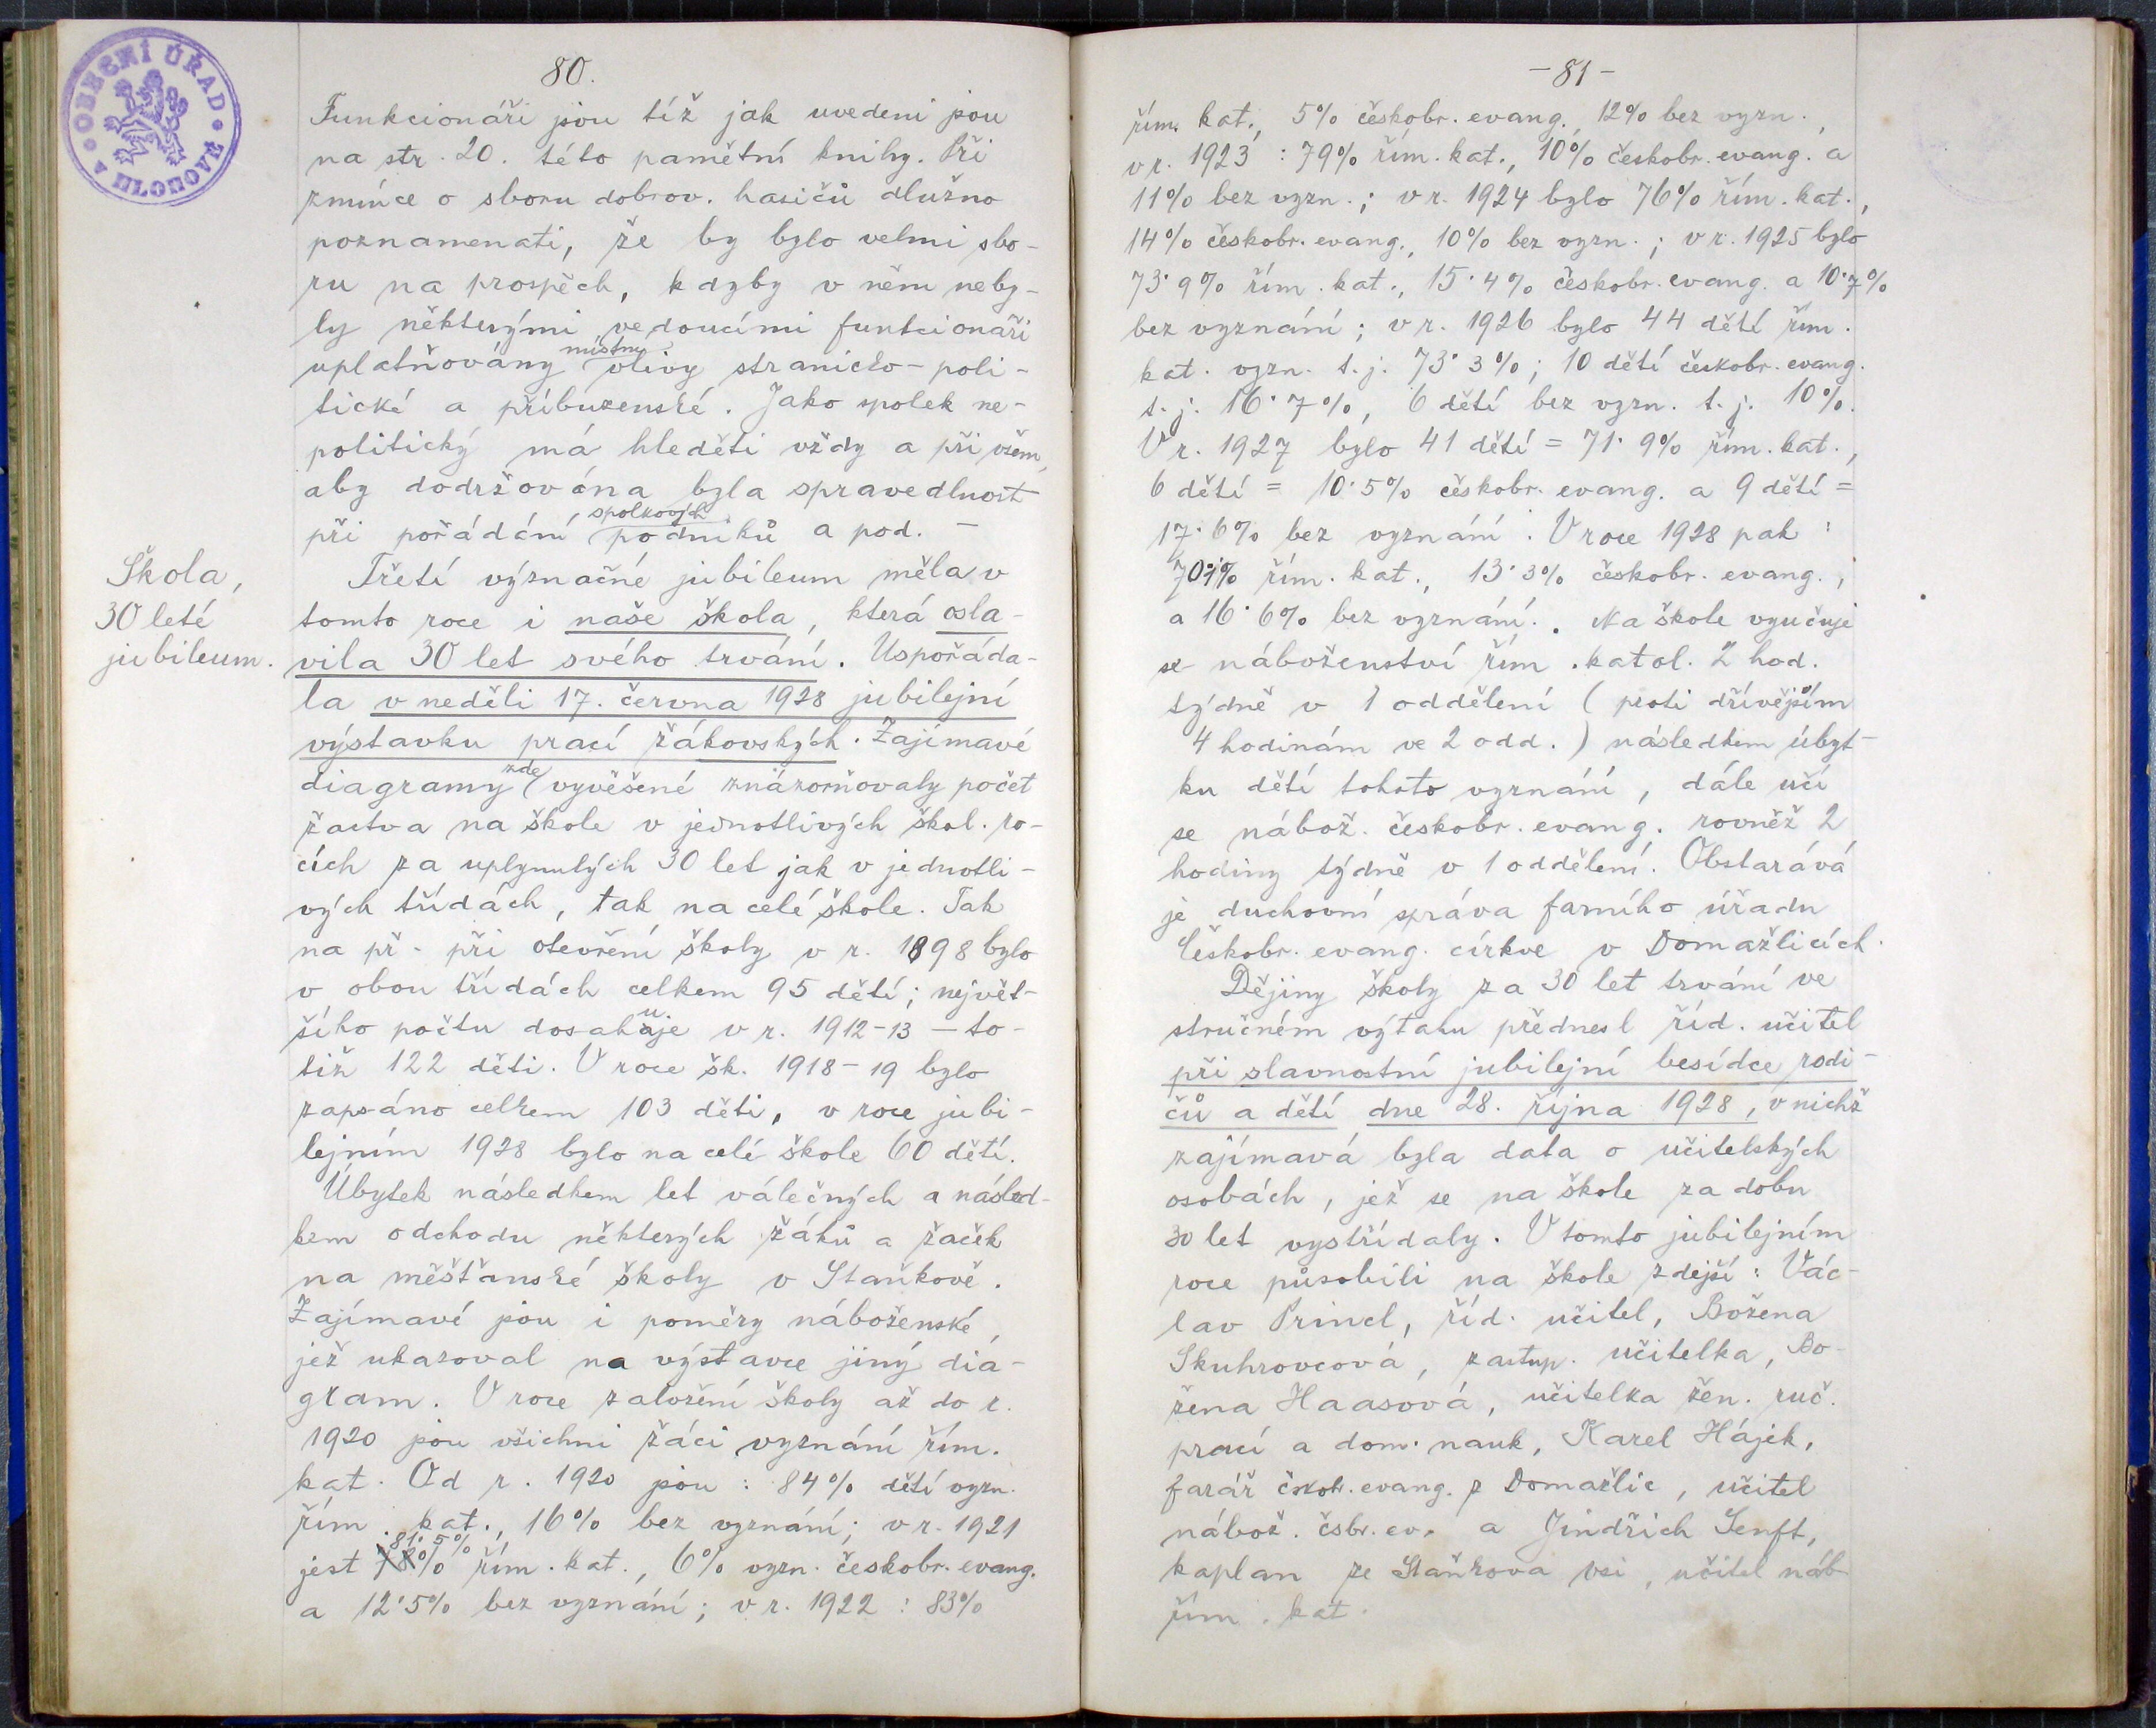 80.
Funkcionáři jsou tíž jak uvedeni jsou
na str. 20. této pamětní knihy. Při
zmínce o sboru dobrov. hasičů dlužno
poznamenati, že by bylo velmi sbo-
ru na prospěch, kdyby v něm neby-
ly některými vedoucími funkcionáři
místny
uplatňovány vlivy stranicko-poli-
tické a příbuzenské. Jako spolek ne-
politický má hleděti vždy a při všem,
aby dodržována byla spravedlnost
spolkových
při pořádání podniků a pod. -
Škola,
30 leté
jubileum.
Třetí význačné jubileum měla v
tomto roce i naše škola, která osla-
vila 30 let svého trvání. Uspořáda-
la v neděli 17. června 1928 jubilejní
výstavku prací žákovských. Zajímavé
zde
diagramy vyvěšené znázorňovaly počet
žactva na škole v jednotlivých škol. ro-
cích za uplynulých 30 let jak v jednotli-
vých třídách, tak na celé škole. Tak
na př. při otevření školy v r. 1898 bylo
v obou třídách celkem 95 dětí; největ-
šího počtu dosahuje v r. 1912-13 - to-
tiž 122 děti. V roce šk. 1918-19 bylo
zapsáno celkem 103 děti, v roce jubi-
lejním 1928 bylo na celé škole 60 dětí.
Úbytek následkem let válečných a násled-
kem odchodu některých žáků a žaček
na měšťanské školy v Staňkově.
Zajímavé jsou i poměry náboženské,
jež ukazoval na výstavce jiný dia-
gram. V roce založení školy až do r.
1920 jsou všichni žáci vyznání řím.
kat. Od r. 1920 jsou: 84% dětí vyzn.
řím. kat., 16% bez vyznání; v r. 1921
81·5%
jest 78% řím. kat., 6% vyzn. českobr. evang.
a 12·5% bez vyznání; v r. 1922: 83%
-81-
řím. kat., 5% českobr. evang., 12% bez vyzn.,
v r. 1923: 79% řím. kat., 10% českobr. evang. a
11% bez vyzn.; v r. 1924 bylo 76% řím. kat.,
14% českobr. evang., 10% bez vyzn.; v r. 1925 bylo
73·9% řím. kat., 15·4% českobr. evang. a 10·7%
bez vyznání; v r. 1926 bylo 44 dětí řím.
kat. vyzn. t.j. 73·3%; 10 dětí českobr. evang.
t.j. 16·7%, 6 dětí bez vyzn. t.j. 10%.
V r. 1927 bylo 41 dětí = 71·9% řím. kat.,
6 dětí = 10·5% českobr. evang. a 9 dětí =
17·6% bez vyznání. V roce 1928 pak:
70·1% řím. kat., 13·3% českobr. evang.,
a 16·6% bez vyznání. Na škole vyučuje
se náboženství řím. katol. 2 hod.
týdně v 1 oddělení (proti dřívějším
4 hodinám ve 2 odd.) následkem úbyt-
ku dětí tohoto vyznání, dále učí
se nábož. českobr. evang. rovněž 2
hodiny týdně v 1 oddělení. Obstarává
je duchovní správa farního úřadu
Českobr. evang. církve v Domažlicích.
Dějiny školy za 30 let trvání ve
stručném výtahu přednesl říd. učitel
při slavnostní jubilejní besídce rodi-
čů a dětí dne 28. října 1928, v nichž
zajímavá byla data o učitelských
osobách, jež se na škole za dobu
30 let vystřídaly. V tomto jubilejním
roce působili na škole zdejší: Vác-
lav Princl, říd. učitel, Božena
Skuhrovcová, zastup. učitelka, Bo-
žena Haasová, učitelka žen. ruč.
prací a dom. nauk, Karel Hájek,
farář čskobr. evang. z Domažlic, učitel
nábož. čsbr. ev. a Jindřich Senft,
kaplan ze Staňkova vsi, učitel náb
řím. kat.
OBECNÍ ÚŘAD